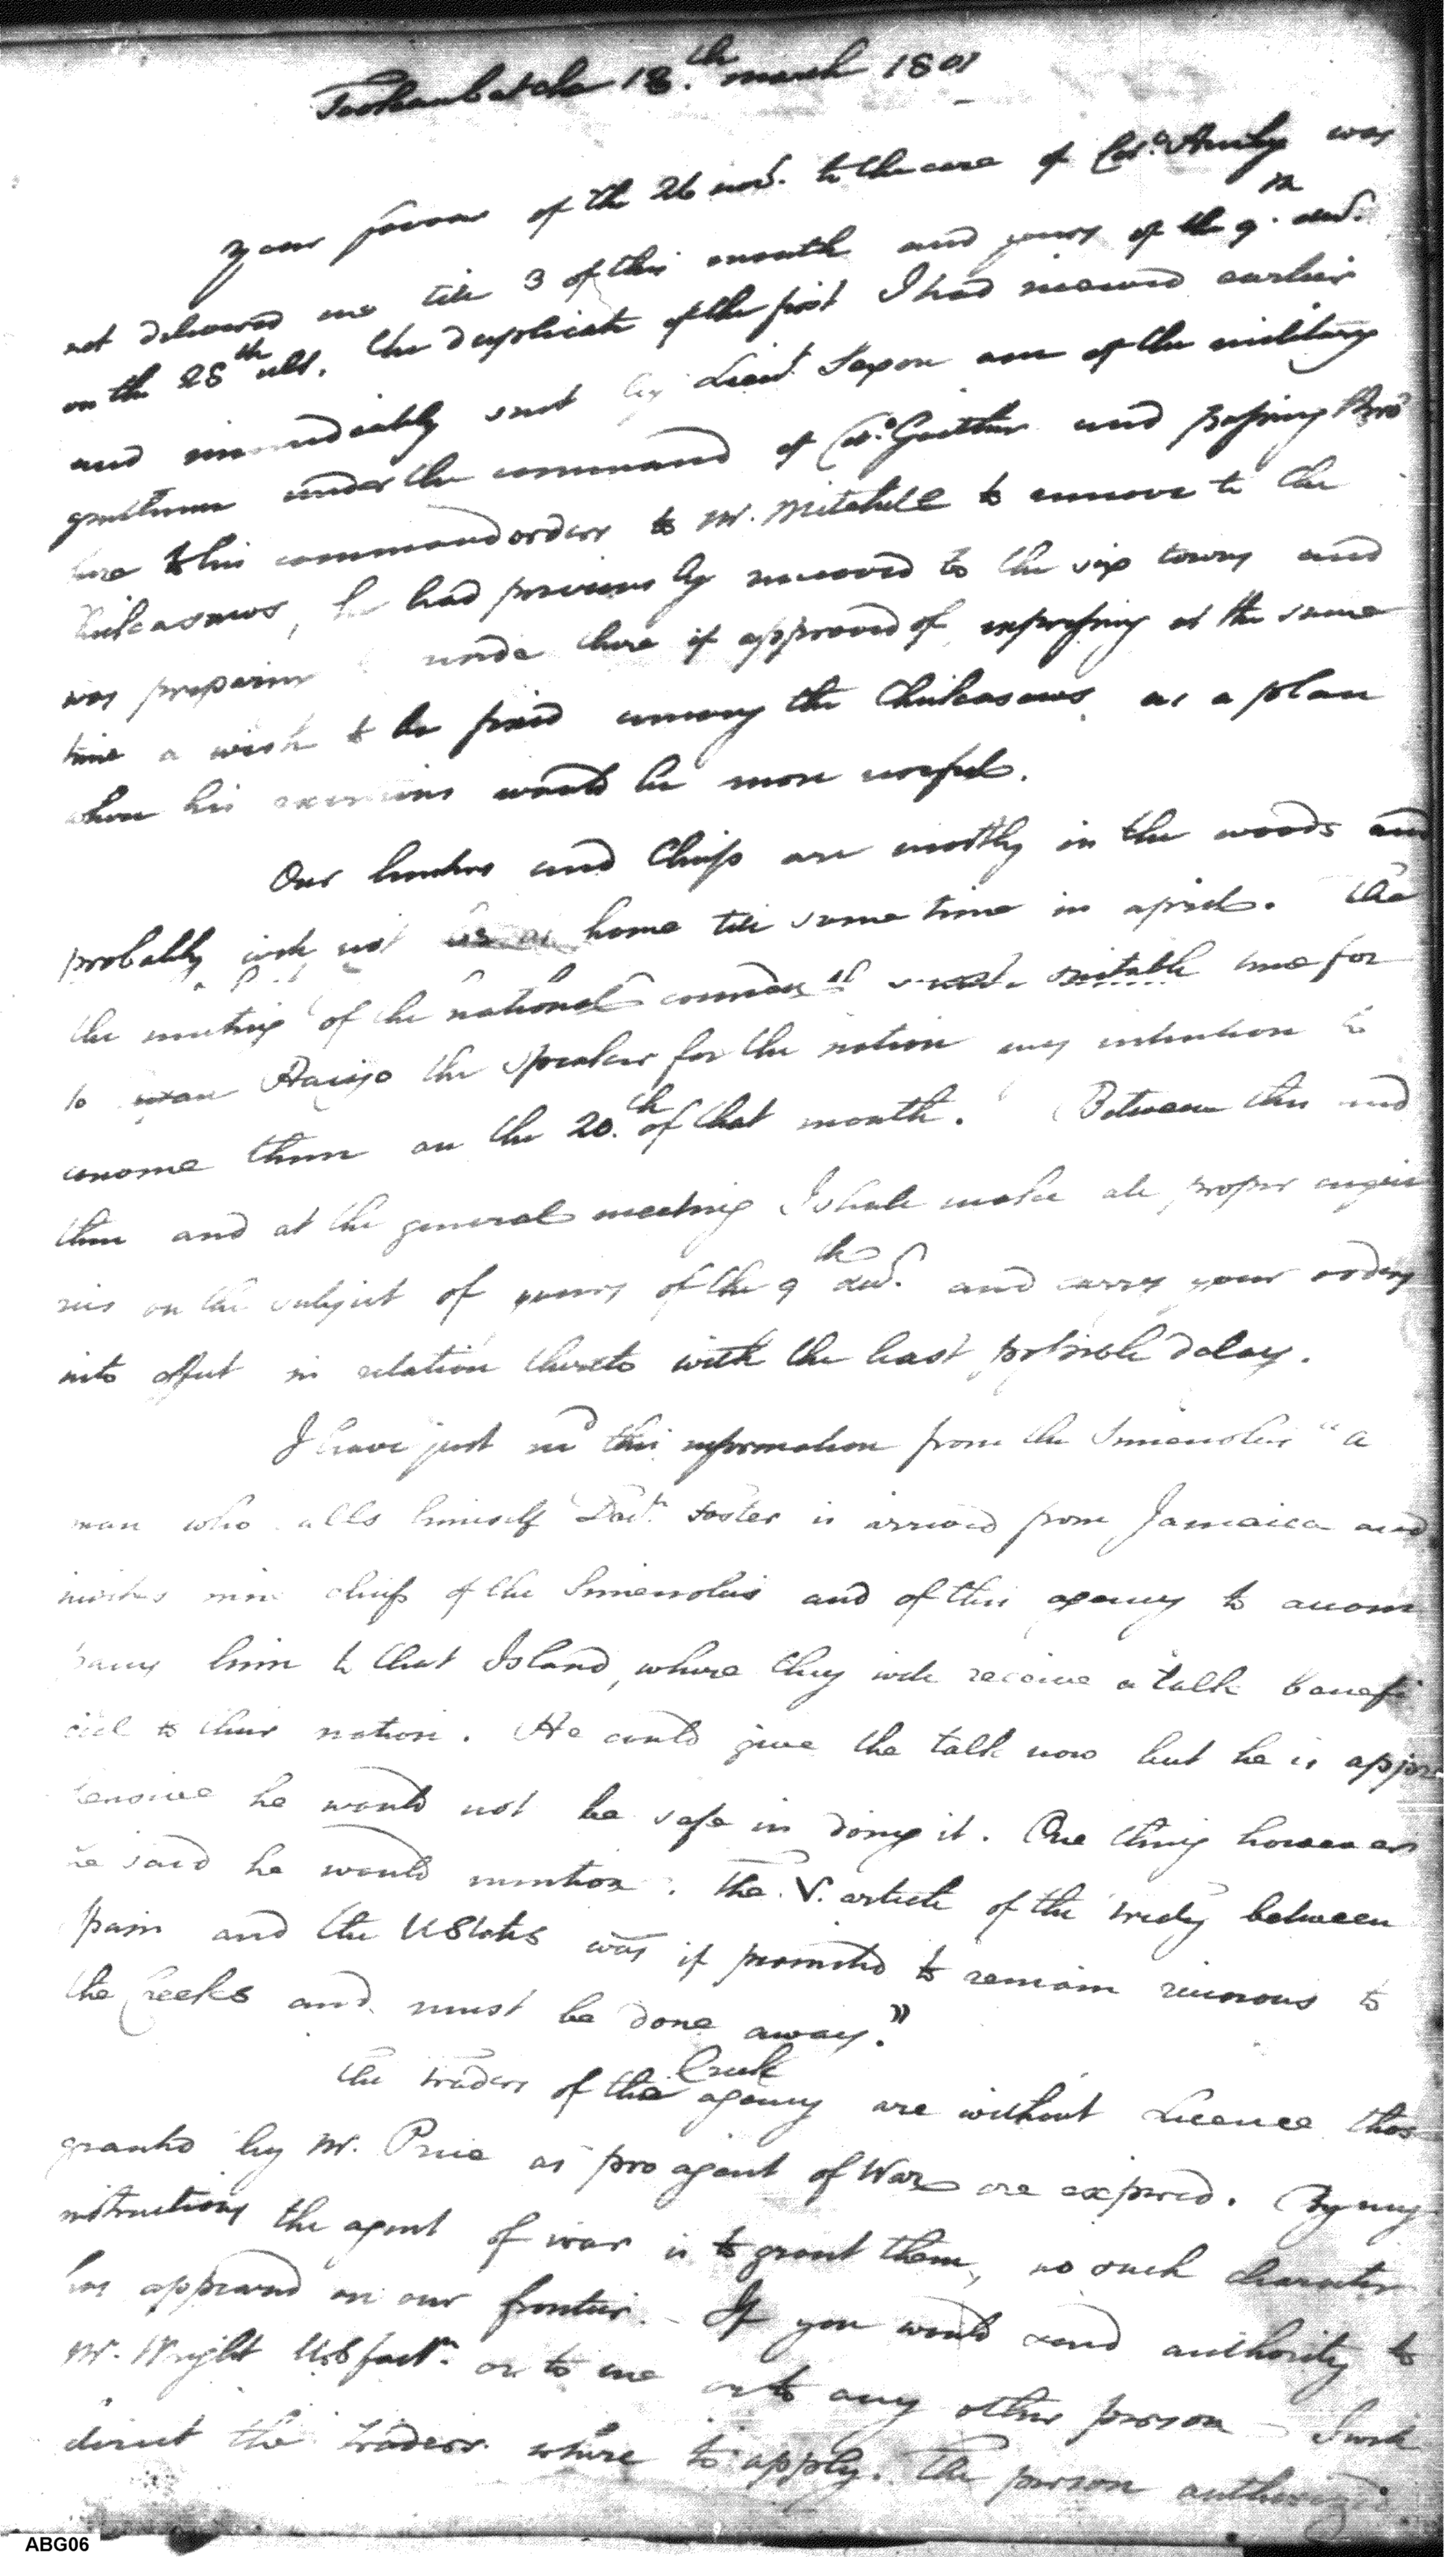 Tookaubatche 18.th march 1801
Your favour of the 26 nov.r to the care of Col.o was
not delivered me till 3 of this month and yours of the 9.th decr.
on the 28th ult. the duplicate of the first I had received earlier
and immediately sent by Lieut. Saxon one of the military
gentlemen under the command of Col.o Gaither and passing
here to his command orders to Mr. Mitchell to remove to the
Chickasaws, he had previously removed to the six towns and
was preparing reside there if approved of expressing at the same
time a wish to be fixed among the Chickasaws as a place
where his exertions would be more useful.
Our hunters and Chiefs are mostly in the woods and
probably will not be at home till some time in april. The
the meeting of the national council is most suitable time for
to Haujo the speaker for the nation my intention to
convene them on the 20.th of that month. Between this and
then and at the general meeting I shall make all proper enqui
ries on the subject of yours of the 9th decr. and carry your orders
into effect in relation thereto with the least possible delay.
I have just recd this information from the Simenolies "a
man who calls himself foster is arrived from Jamaica and
invites nine chiefs of the Simenolies and of this agency to accom
pany him to that Island, where they will receive a talk benefi
cial to their nation. He could give the talk now but he is appre
hensive he would not be safe in doing it. One thing however
he said he would mention. The V. article of the treaty between
Spain and the U States was if permitted to remain ruinous to
the Creeks and must be done away."
The traders of the Creek agency are without Licence thos
granted by Mr. Price as pro agent of War are expired. By my
instructions the agent of war is to grant them, no such character
has appeared on our frontier. If you would send authority to
Mr. Wright U.S factr. or to me or to any other person I will
direct the traders where to apply. The person authorized
ABG06